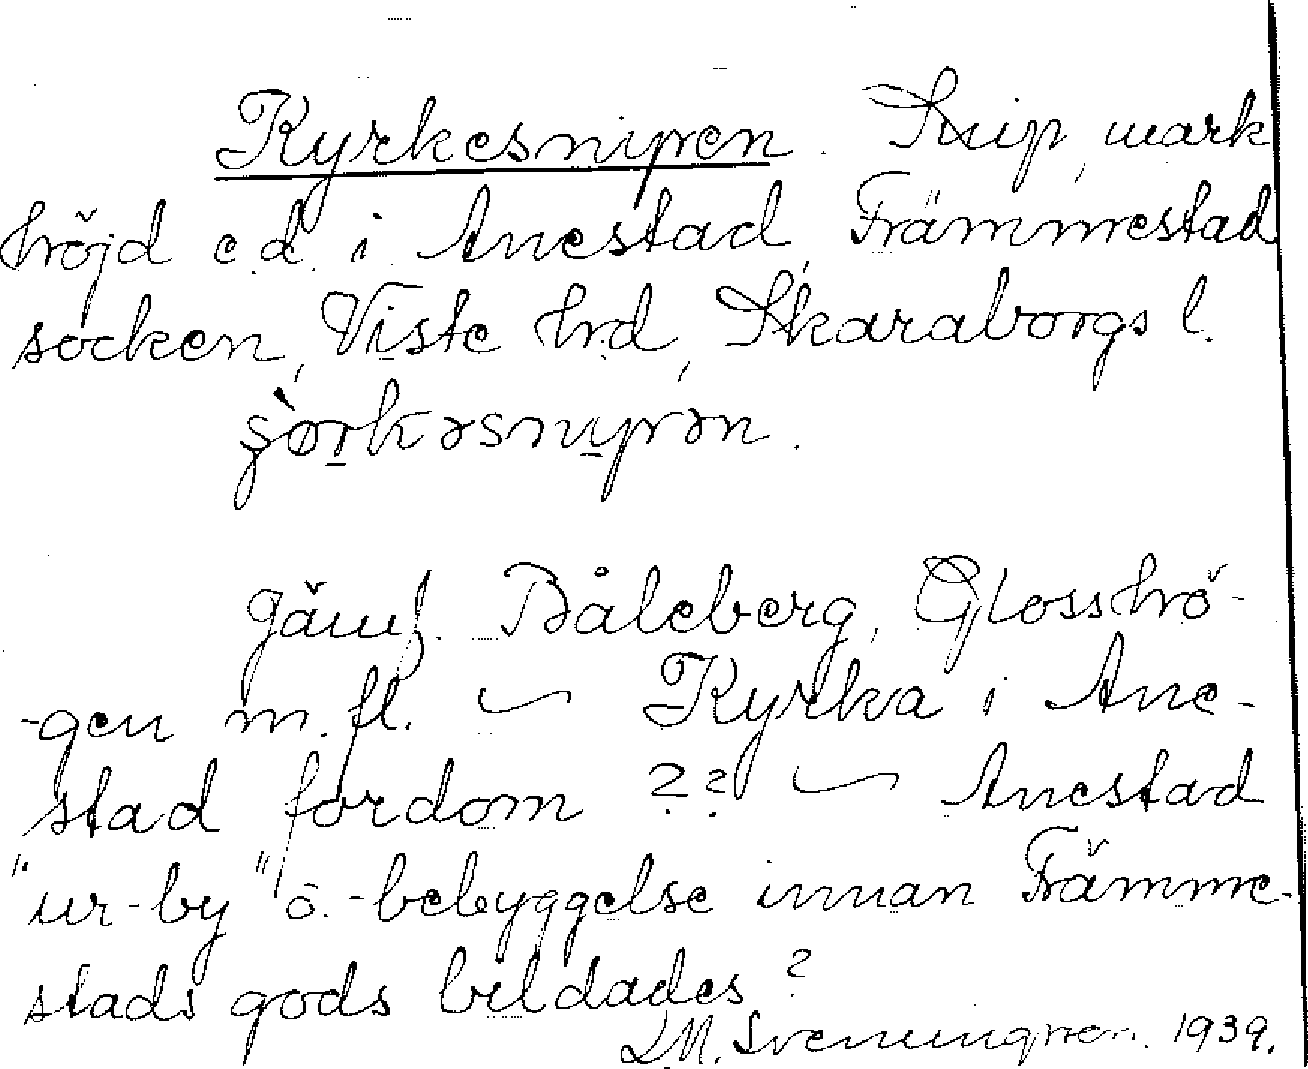 Kyrkesnipen. Snip, mark
höjd e.d. i Anestad, Främmestad
socken, Viste hrd, Skaraborgs l.
Jämf. Båleberg, Glosshö-
-gen m.fl. — Kyrka i Ane-
stad fordom ?? — Anestad
"ur-by" o.-bebyggelse innan Främme-
stads gods bildades?
1939.